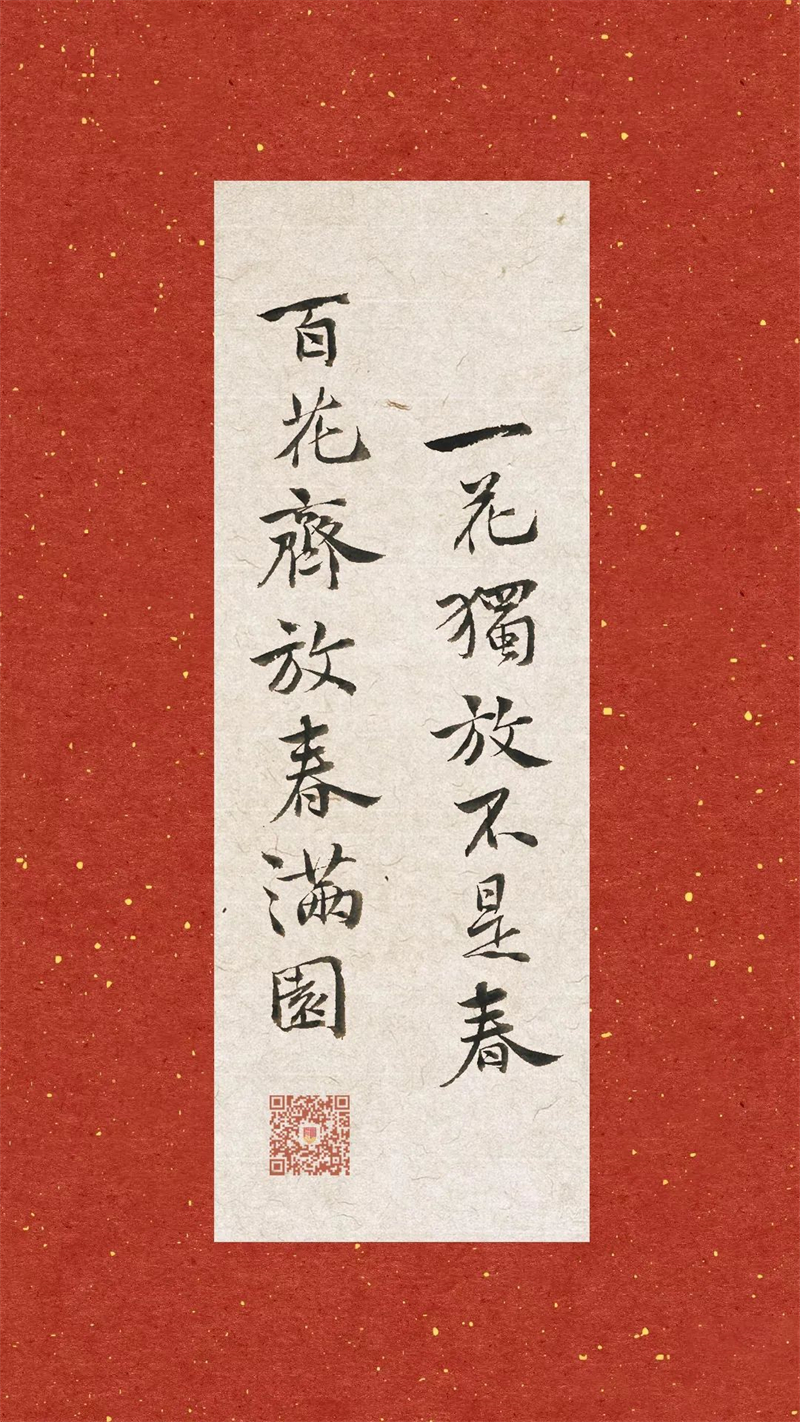 一花獨放不是春
百花齊放春滿園